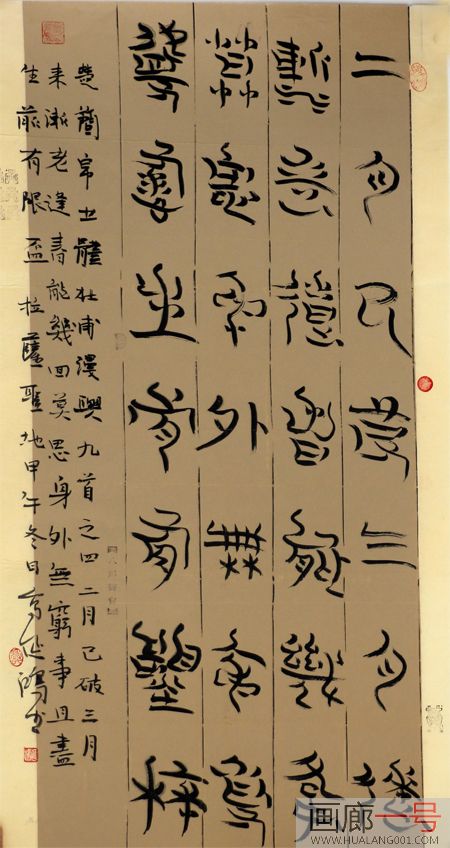 二月已破三月來
漸老逢春能幾回
莫思身外無窮事
且盡生前有限杯
楚簡帛體杜甫漫興九首之四二月已破三月
來漸老逢春能幾回莫思身外無窮事且盡
生前有限盃拉薩聖地甲午冬日
画廊一号
WWW.HUALANG001.COM